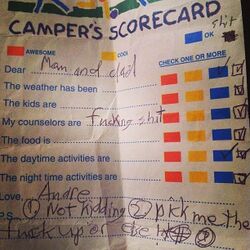 CAMPER'S SCORECARD
shit
AWESOME
COOL
OK
CHECK ONE OR MORE
Dear Mom and dad
The weather has been
The kids are
My counselors are fucking shit
The food is
The daytime activities are
The night time activities are
Love, Andre
P.S. ① Not kidding ② pick me the
fuck up or else